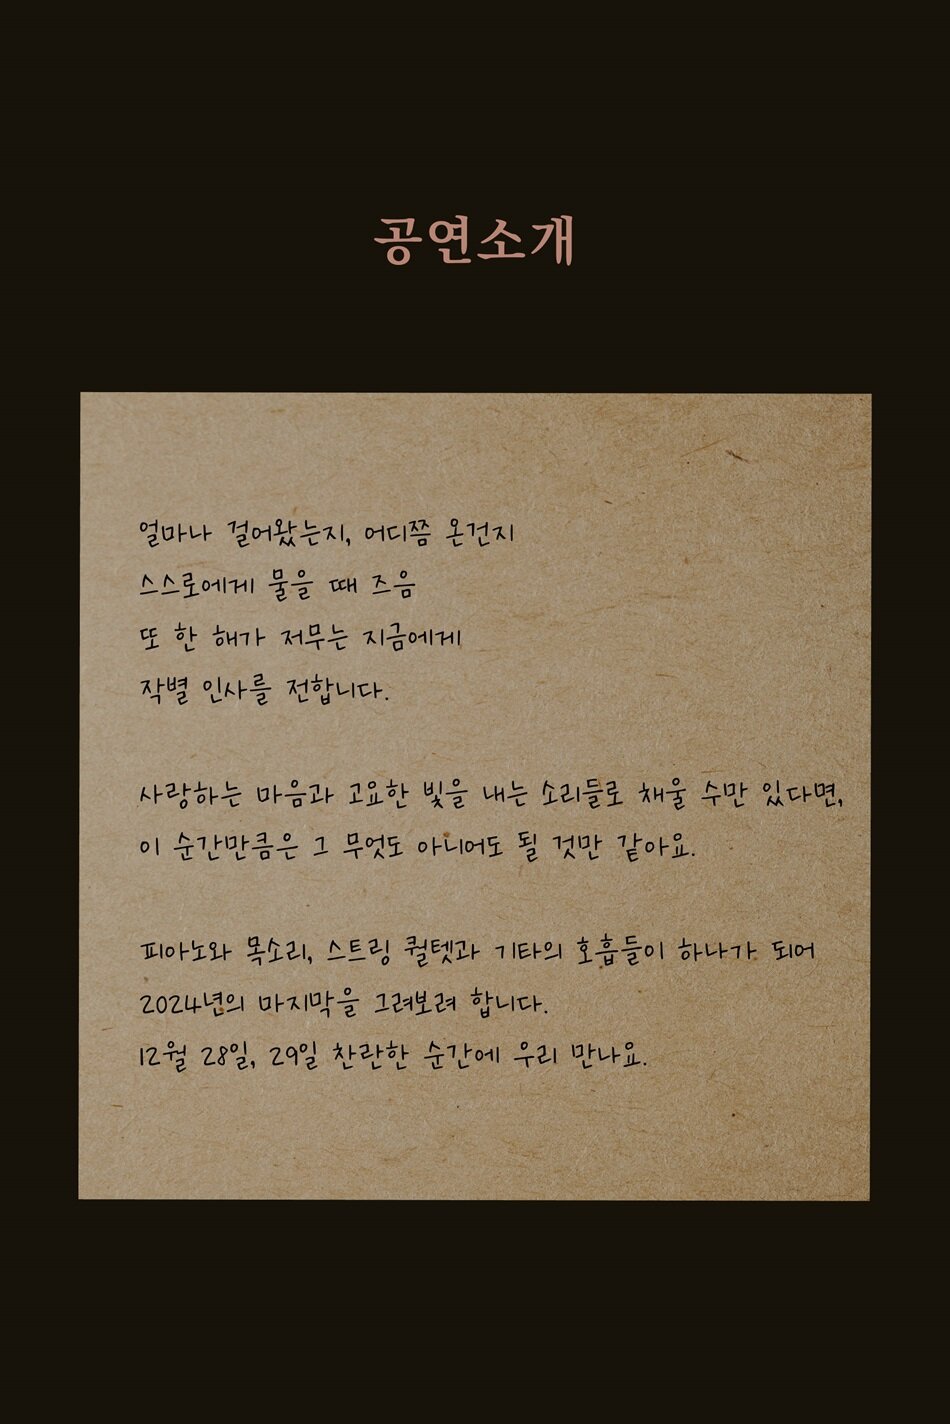 공연소개
얼마나 걸어왔는지, 어디쯤 온건지
스스로에게 물을 때 즈음
또 한 해가 저무는 지금에게
작별 인사를 전합니다.
사랑하는 마음과 고요한 빛을 내는 소리들로 채울 수만 있다면,
이 순간만큼은 그 무엇도 아니어도 될 것만 같아요.
피아노와 목소리, 스트링 퀄텟과 기타의 호흡들이 하나가 되어
2024년의 마지막을 그려보려 합니다.
12월 28일, 29일 찬란한 순간에 우리 만나요.